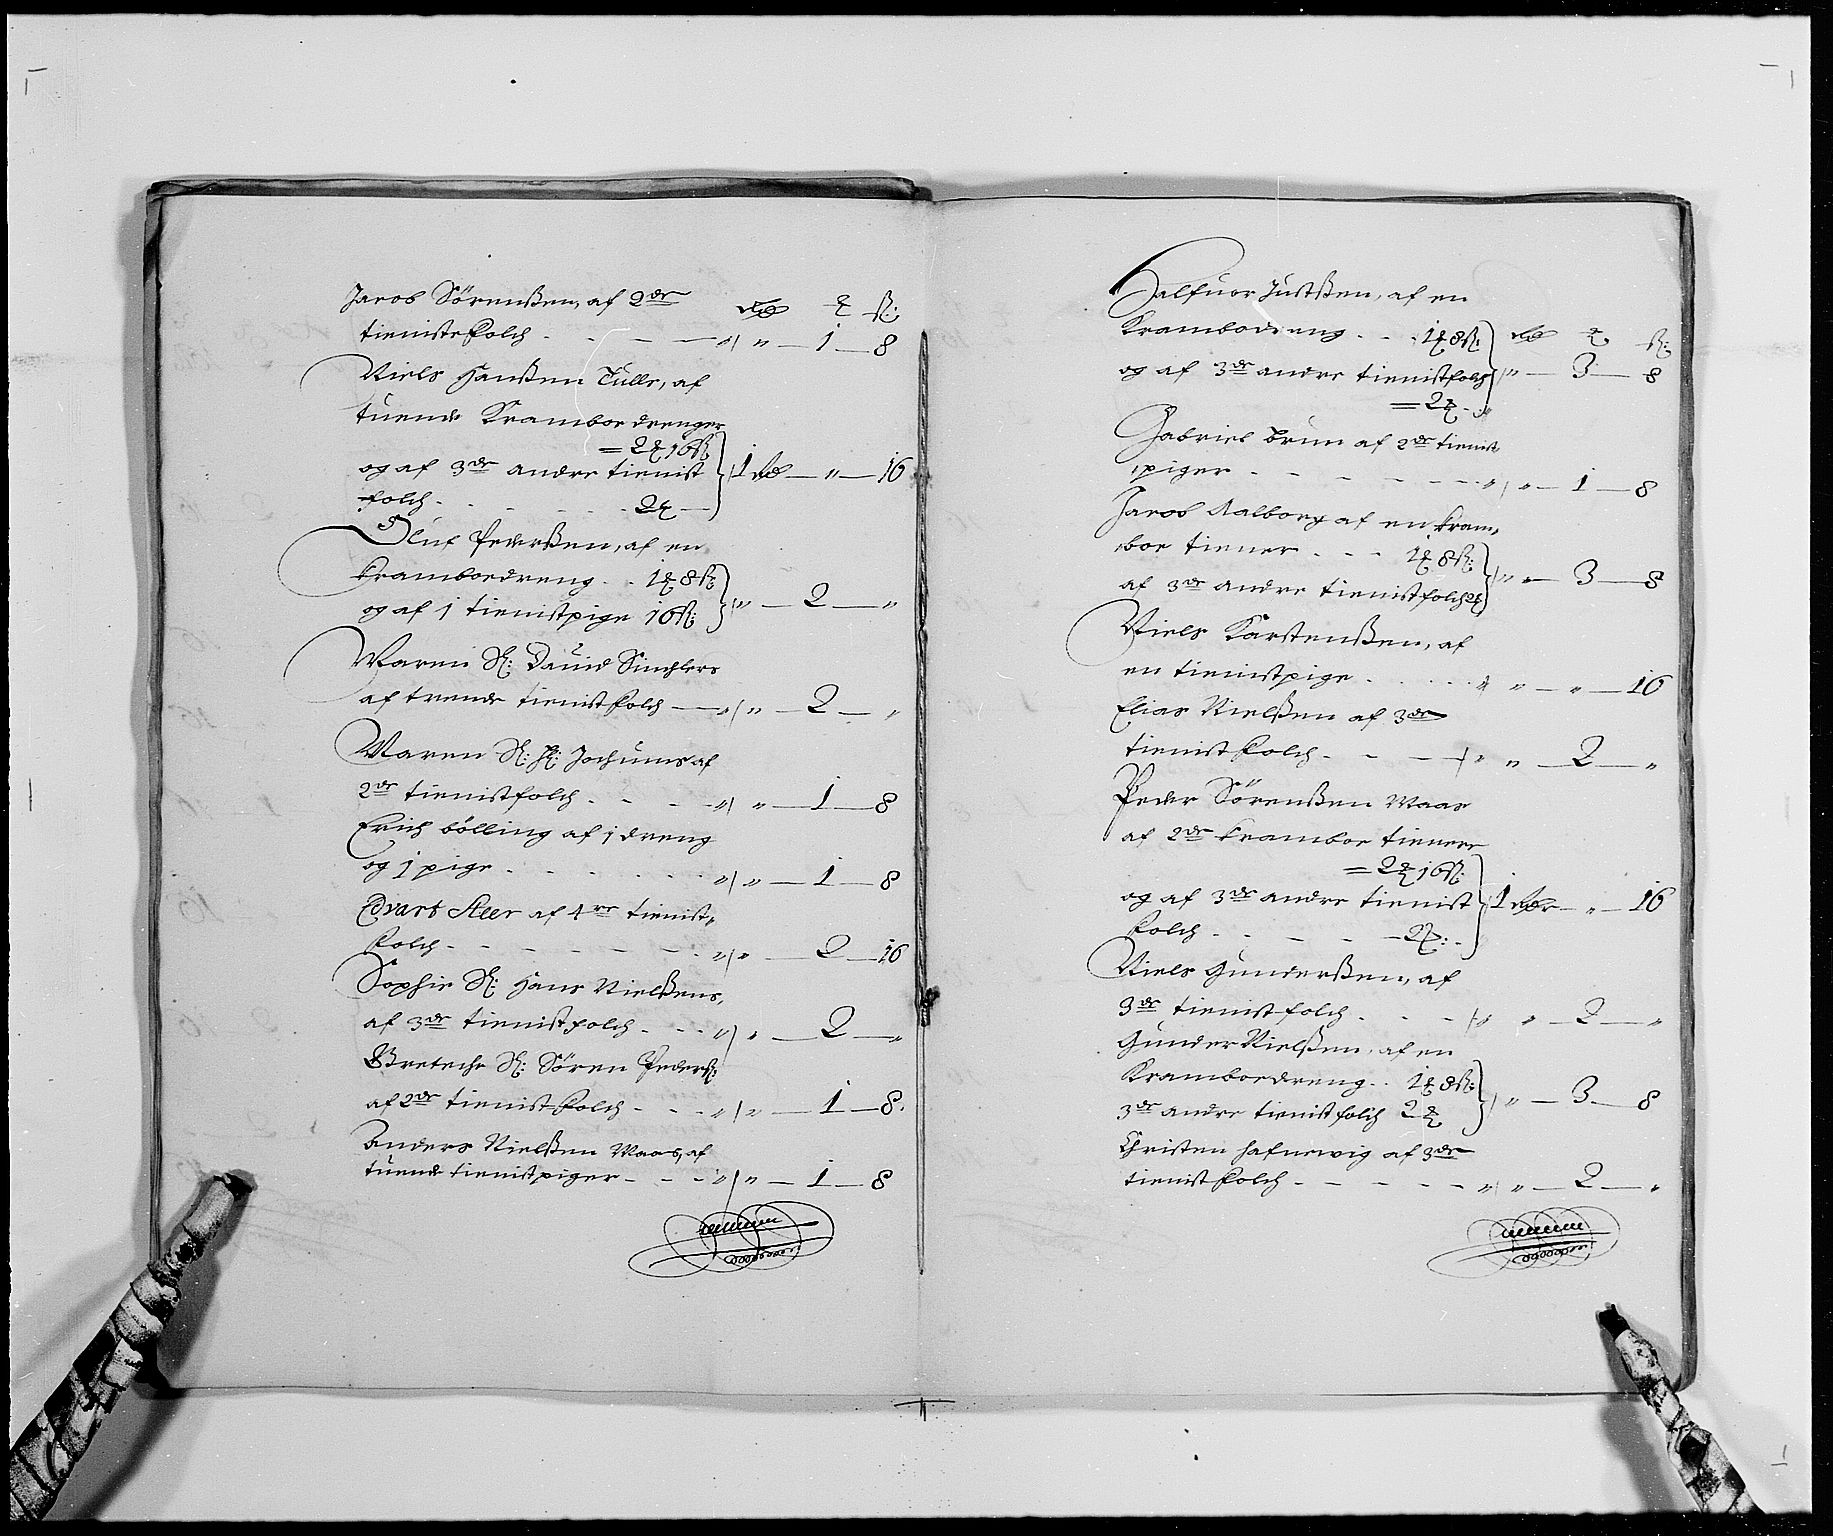 Jacob Sörenßen, af 2de rd ꝝ ß:
tienistefolch - - - - „ „ — 1 — 8
Niels Hanßen Tulle, af
tuende Kramboedrenger
= 2ꝝ 16ß
og af 3de andre tienist 1 rd — „ — 16
folch - - - - 2ꝝ —
Oluf Pederßen, af en
kramboedreng - - 1ꝝ 8ß
og af 1 tienistpige 16ß: „ — 2 — „
Maren Sl: Dauid Sinchlers
af trende tienistfolch — „ „ — 2 — „
Maren Sl: Jochums af
2de tienistfolch - - - „ „ — 1 — 8
Erich bölling af 1 dreng
og 1 pige - - - - „ „ — 1 — 8
Edvart Steer af 4re tienist-
folch - - - - - „ „ — 2 — 16
Sophie Sl: Hans Nielßens,
af 3de tienistfolch - - - „ „ — 2 — „
Gretche Sl: Sören Pederß:
af 2de tienistfolch - - - „ „ — 1 — 8.
Anders Nielßen Maas, af
tuende tienistpiger - - - „ „ — 1 — 8
Halfuor Justßen, af en
Kramboedreng - - 1ꝝ 8ß: rd ꝝ ß:
og af 3de andre tienistfolch „ — 3 — 8
= 2ꝝ - „
Gabriel brun af 2de tienist
piger - - - - - „ „ — 1 — 8
Jacob Aalborg af en kram-
boe tiener - - - 1ꝝ 8ß: „ „ — 3 — 8
af 3de andre tienistfolch 2ꝝ
Niels Karstenßen, af
en tienistpige - - - - „ „ — „ — 16
Elias Nielßen af 3de
tienistfolch - - - „ „ — 2 — „
Peder Sörenßen Maas
af 2de kramboe tienere
= 2ꝝ 16ß:
og af 3de andre tienist 1 rdr — „ — 16
folch - - - - 2ꝝ: -
Niels Gunderßen, af
3de tienistfolch - - - „ „ — 2 — „
Gunder Nielßen, af en
Kramboedreng - - 1ꝝ 8ß: „ — 3 — 8
3de andre tienistfolch 2ꝝ
Christen hafuewig af 3de
tienistfolch - - - - - „ „ — 2 — „